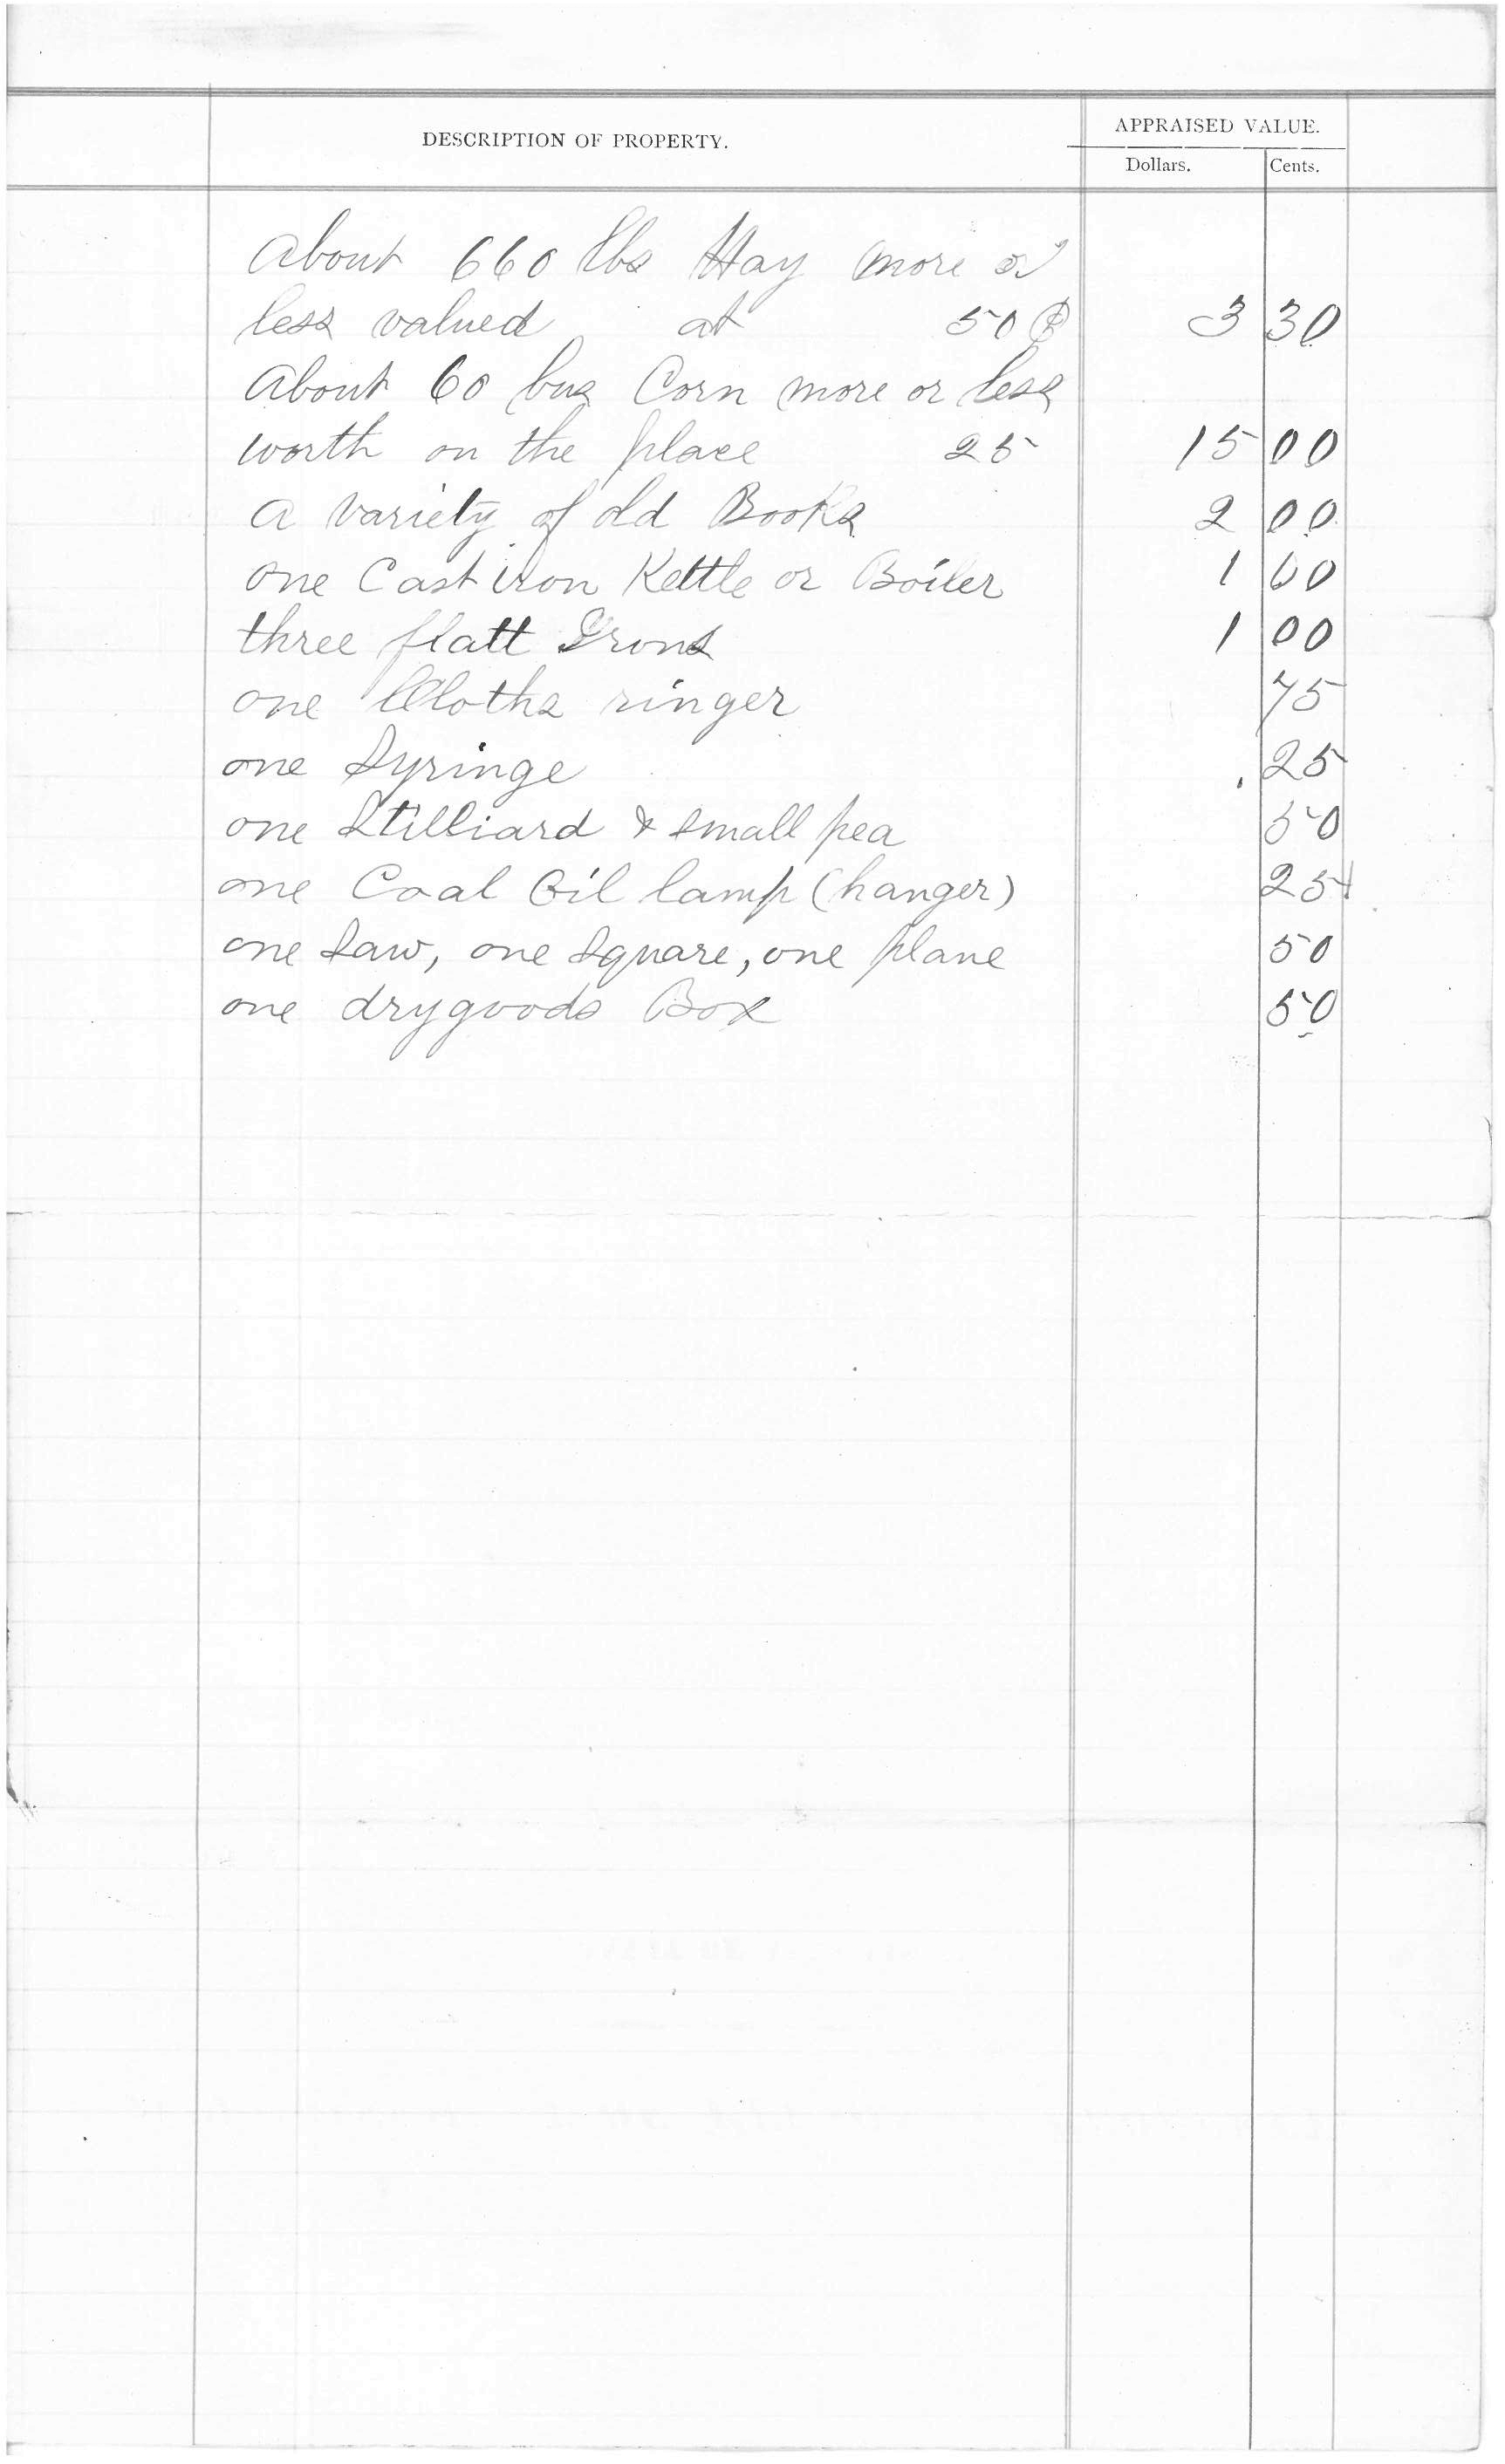 DESCRIPTION OF PROPERTY.
APPRAISED VALUE.
Dollars. Cents.
About 660 lbs Hay more or
less valued at 50 3 30
About 60 bus Corn more or less
worth on the place 25 15 00
a variety of old Books 2 00
one Cast iron Kettle or Boiler 1 00
three flatt Irons 1 00
one Cloths ringer 75
one Syringe 25
one Stilliard & small pea 50
one Coal Oil lamp (hanger) 25
one Saw, one Square, one plane 50
one drygoods Box 50